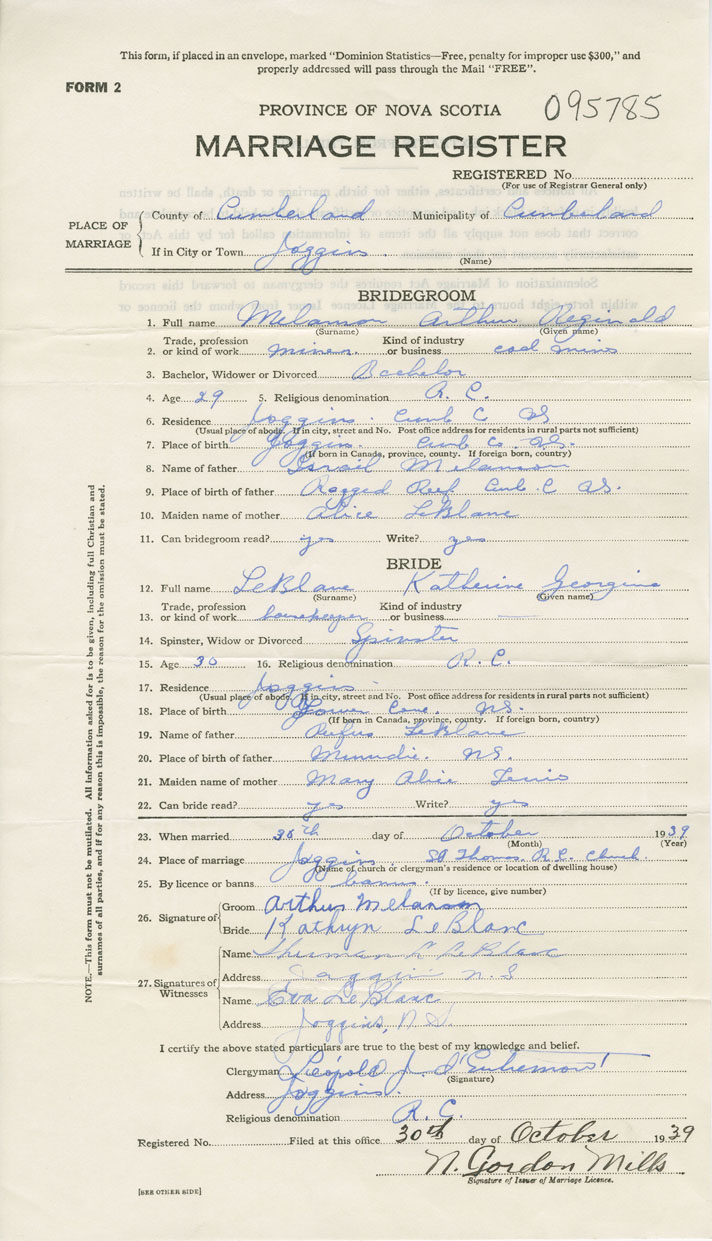 This form, if placed in an envelope, marked "Dominion Statistics—Free, penalty for improper use $300," and
properly addressed will pass through the Mail "FREE".
FORM 2
PROVINCE OF NOVA SCOTIA 095785
MARRIAGE REGISTER
REGISTERED No.
(For use of Registrar General only)
PLACE OF MARRIAGE
County of Cumberland Municipality of Cumberland
If in City or Town Joggins
(Name)
BRIDEGROOM
1. Full name Melanson Arthur Reginald
(Surname) (Given name)
2. Trade, profession or kind of work miner Kind of industry or business coal mine
3. Bachelor, Widower or Divorced Bachelor
4. Age 29 5. Religious denomination R. C.
6. Residence Joggins Cumb C NS
(Usual place of abode. If in city, street and No. Post office address for residents in rural parts not sufficient)
7. Place of birth Joggins. Cumb Co. NS.
(If born in Canada, province, county. If foreign born, country)
8. Name of father Israil Melanson
9. Place of birth of father Ragged Reef Cub. C NS.
10. Maiden name of mother Alice LeBlanc
11. Can bridegroom read? yes Write? yes
BRIDE
12. Full name LeBlanc Katherine Georgina
(Surname) (Given name)
13. Trade, profession or kind of work housekeeper Kind of industry or business —
14. Spinster, Widow or Divorced Spinster
15. Age 30 16. Religious denomination R. C.
17. Residence Joggins
(Usual place of abode. If in city, street and No. Post office address for residents in rural parts not sufficient)
18. Place of birth Lower Cove NS.
(If born in Canada, province, county. If foreign born, country)
19. Name of father Rufus LeBlanc
20. Place of birth of father Minudie. NS.
21. Maiden name of mother Mary Alice
22. Can bride read? yes Write? yes
23. When married 30th day of October 1939
(Month) (Year)
24. Place of marriage Joggins St Thomas R.C. Church
(Name of church or clergyman's residence or location of dwelling house)
25. By licence or banns banns.
(If by licence, give number)
26. Signature of
Groom Arthur Melanson
Bride Kathryn LeBlanc
27. Signatures of Witnesses
Name Sherman L LeBlanc
Address Joggins N.S
Name Eva LeBlanc
Address Joggins, N.S.
I certify the above stated particulars are true to the best of my knowledge and belief.
Clergyman Léopold J. d'Entremont
(Signature)
Address Joggins.
Religious denomination R. C.
Registered No. Filed at this office 30th day of October 1939
N. Gordon Mills
Signature of Issuer of Marriage Licence.
[SEE OTHER SIDE]
NOTE.—This form must not be mutilated. All Information asked for is to be given, including full Christian and
surnames of all parties, and if for any reason this is impossible, the reason for the omission must be stated.